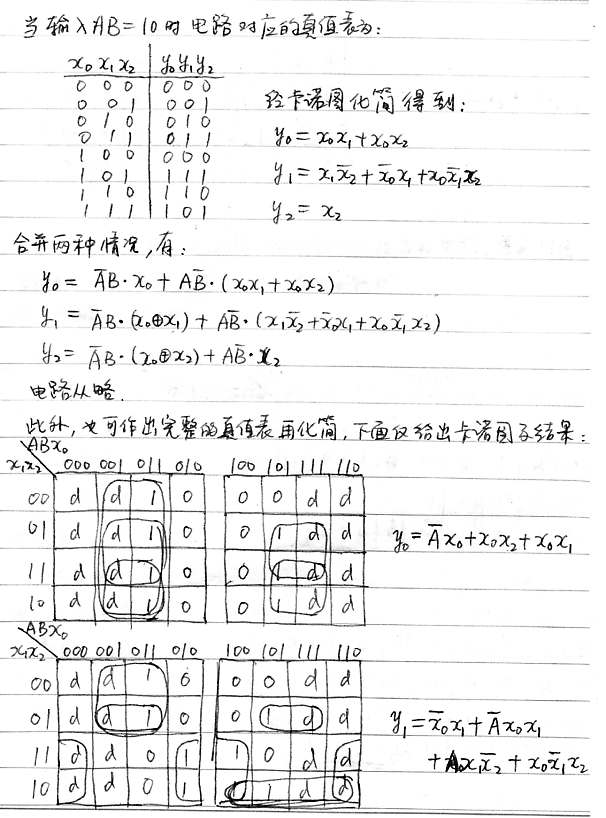 当输入AB=10时电路对应的真值表为：
x₀ x₁ x₂ y₀ y₁ y₂
0 0 0 0 0 0
0 0 1 0 0 1
0 1 0 0 1 0
0 1 1 0 1 1
1 0 0 0 0 0
1 0 1 1 1 1
1 1 0 1 1 0
1 1 1 1 0 1
经卡诺图化简得到：
y₀ = x₀x₁ + x₀x₂
y₁ = x₁x̄₂ + x̄₀x₁ + x₀x̄₁x₂
y₂ = x₂
合并两种情况，有：
y₀ = ĀB·x₀ + AB̄·(x₀x₁ + x₀x₂)
y₁ = ĀB·(x₀⊕x₁) + AB̄·(x₁x̄₂ + x̄₀x₁ + x₀x̄₁x₂)
y₂ = ĀB·(x₀⊕x₂) + AB̄·x₂
电路从略.
此外，也可作出完整的真值表再化简，下面仅给出卡诺图及结果：
ABx₀
x₁x₂ 000 001 011 010 100 101 111 110
00 d d 1 0 0 0 d d
01 d d 1 0 0 1 d d
11 d d 1 0 0 1 d d
10 d d 1 0 0 1 d d
y₀ = Āx₀ + x₀x₂ + x₀x₁
ABx₀
x₁x₂ 000 001 011 010 100 101 111 110
00 d d 1 0 0 0 d d
01 d d 1 0 0 1 d d
11 d d 0 1 1 0 d d
10 d d 0 1 1 1 d d
y₁ = x̄₀x₁ + Āx₀x₁
+ Ax₁x̄₂ + x₀x̄₁x₂